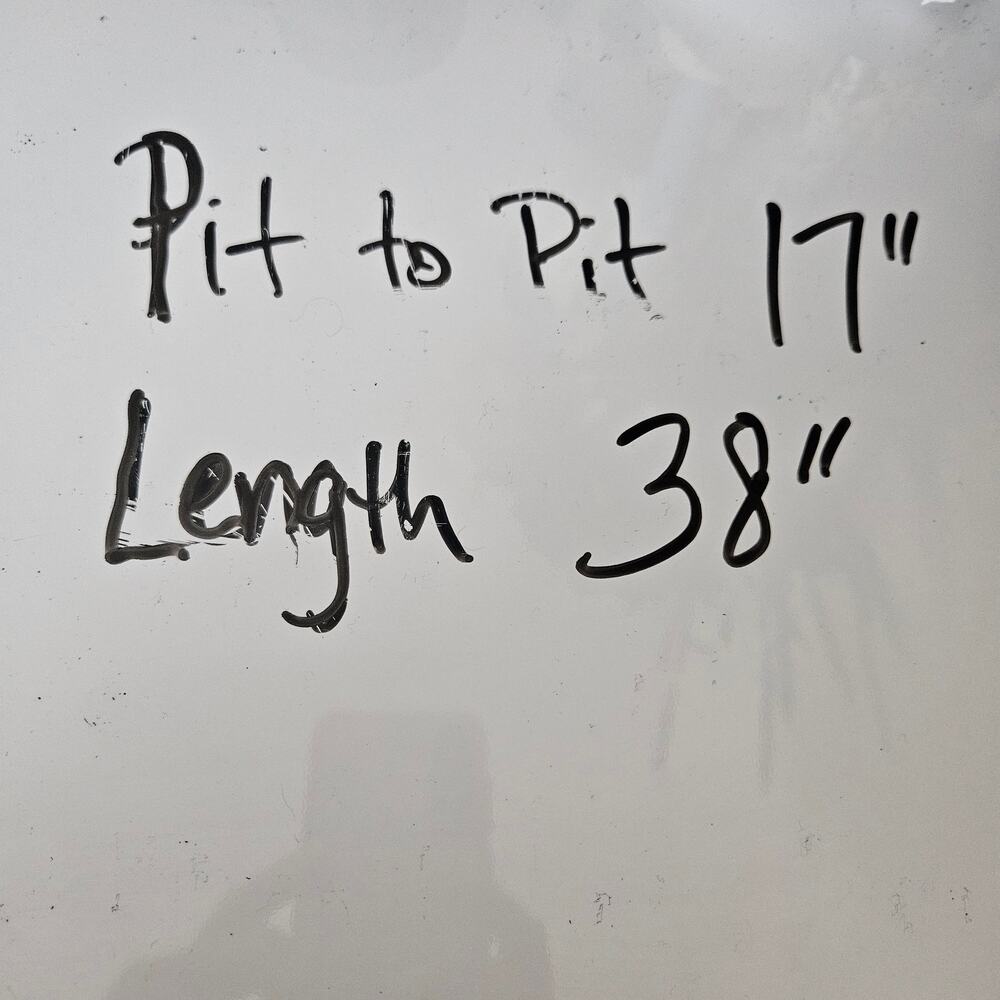 Pit to Pit 17"
Length 38"